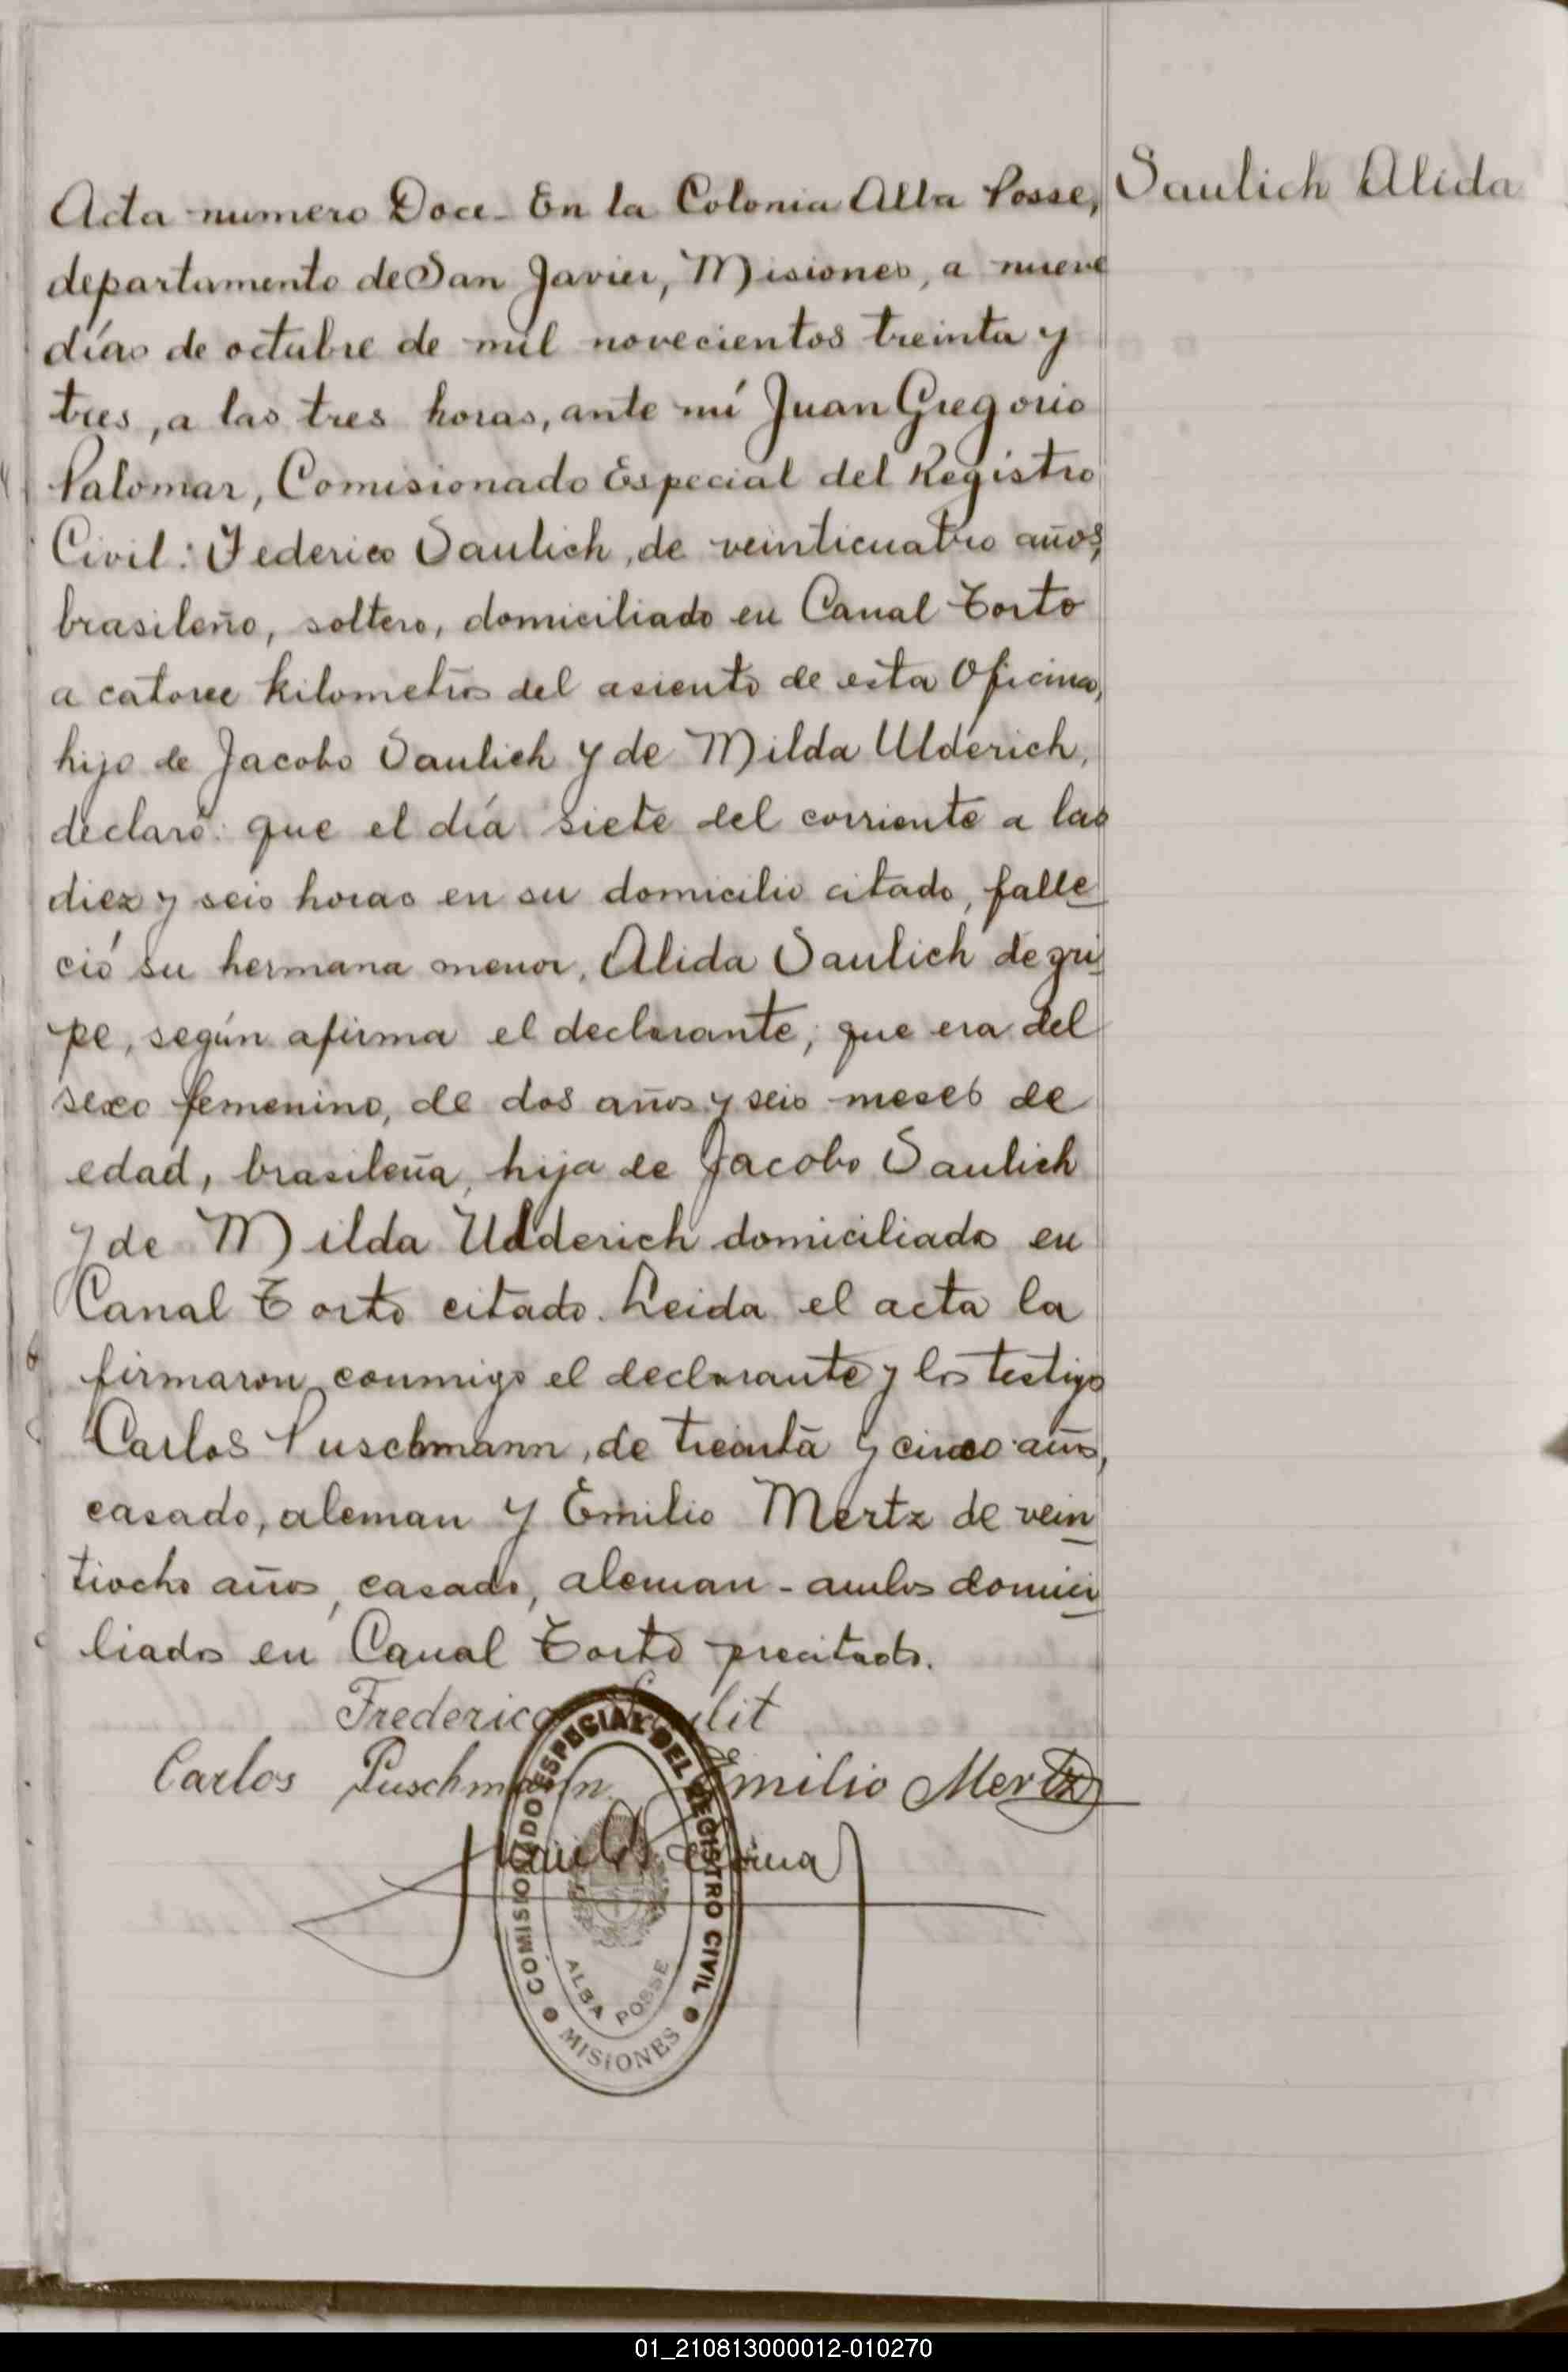 Saulich Alida
Acta numero Doce - En la Colonia Alba Posse,
departamento de San Javier, Misiones, a nueve
días de octubre de mil novecientos treinta y
tres, a las tres horas, ante mí Juan Gregorio
Palomar, Comisionado Especial del Registro
Civil: Federico Saulich, de veinticuatro años,
brasileño, soltero, domiciliado en Canal Torto
a catorce kilometros del asiento de esta Oficina,
hijo de Jacobo Saulich y de Milda Ulderich,
declaró: que el día siete del corriente a las
diez y seis horas en su domicilio citado, falle
ció su hermana menor, Alida Saulich de gri
pe, según afirma el declarante; que era del
sexo femenino, de dos años y seis meses de
edad, brasileña, hija de Jacobo Saulich
y de Milda Ulderich domiciliado en
Canal Torto citado. Leida el acta la
firmaron conmigo el declarante y los testigos
Carlos Puschmann, de treinta y cinco años,
casado, aleman y Emilio Mertz de vein
tiocho años, casado, aleman - ambos domici
liados en Canal Torto precitado.
Frederico
Carlos Puschmann Emilio Mertz
COMISIONADO ESPECIAL DEL REGISTRO CIVIL
ALBA POSSE
MISIONES
01_210813000012-010270